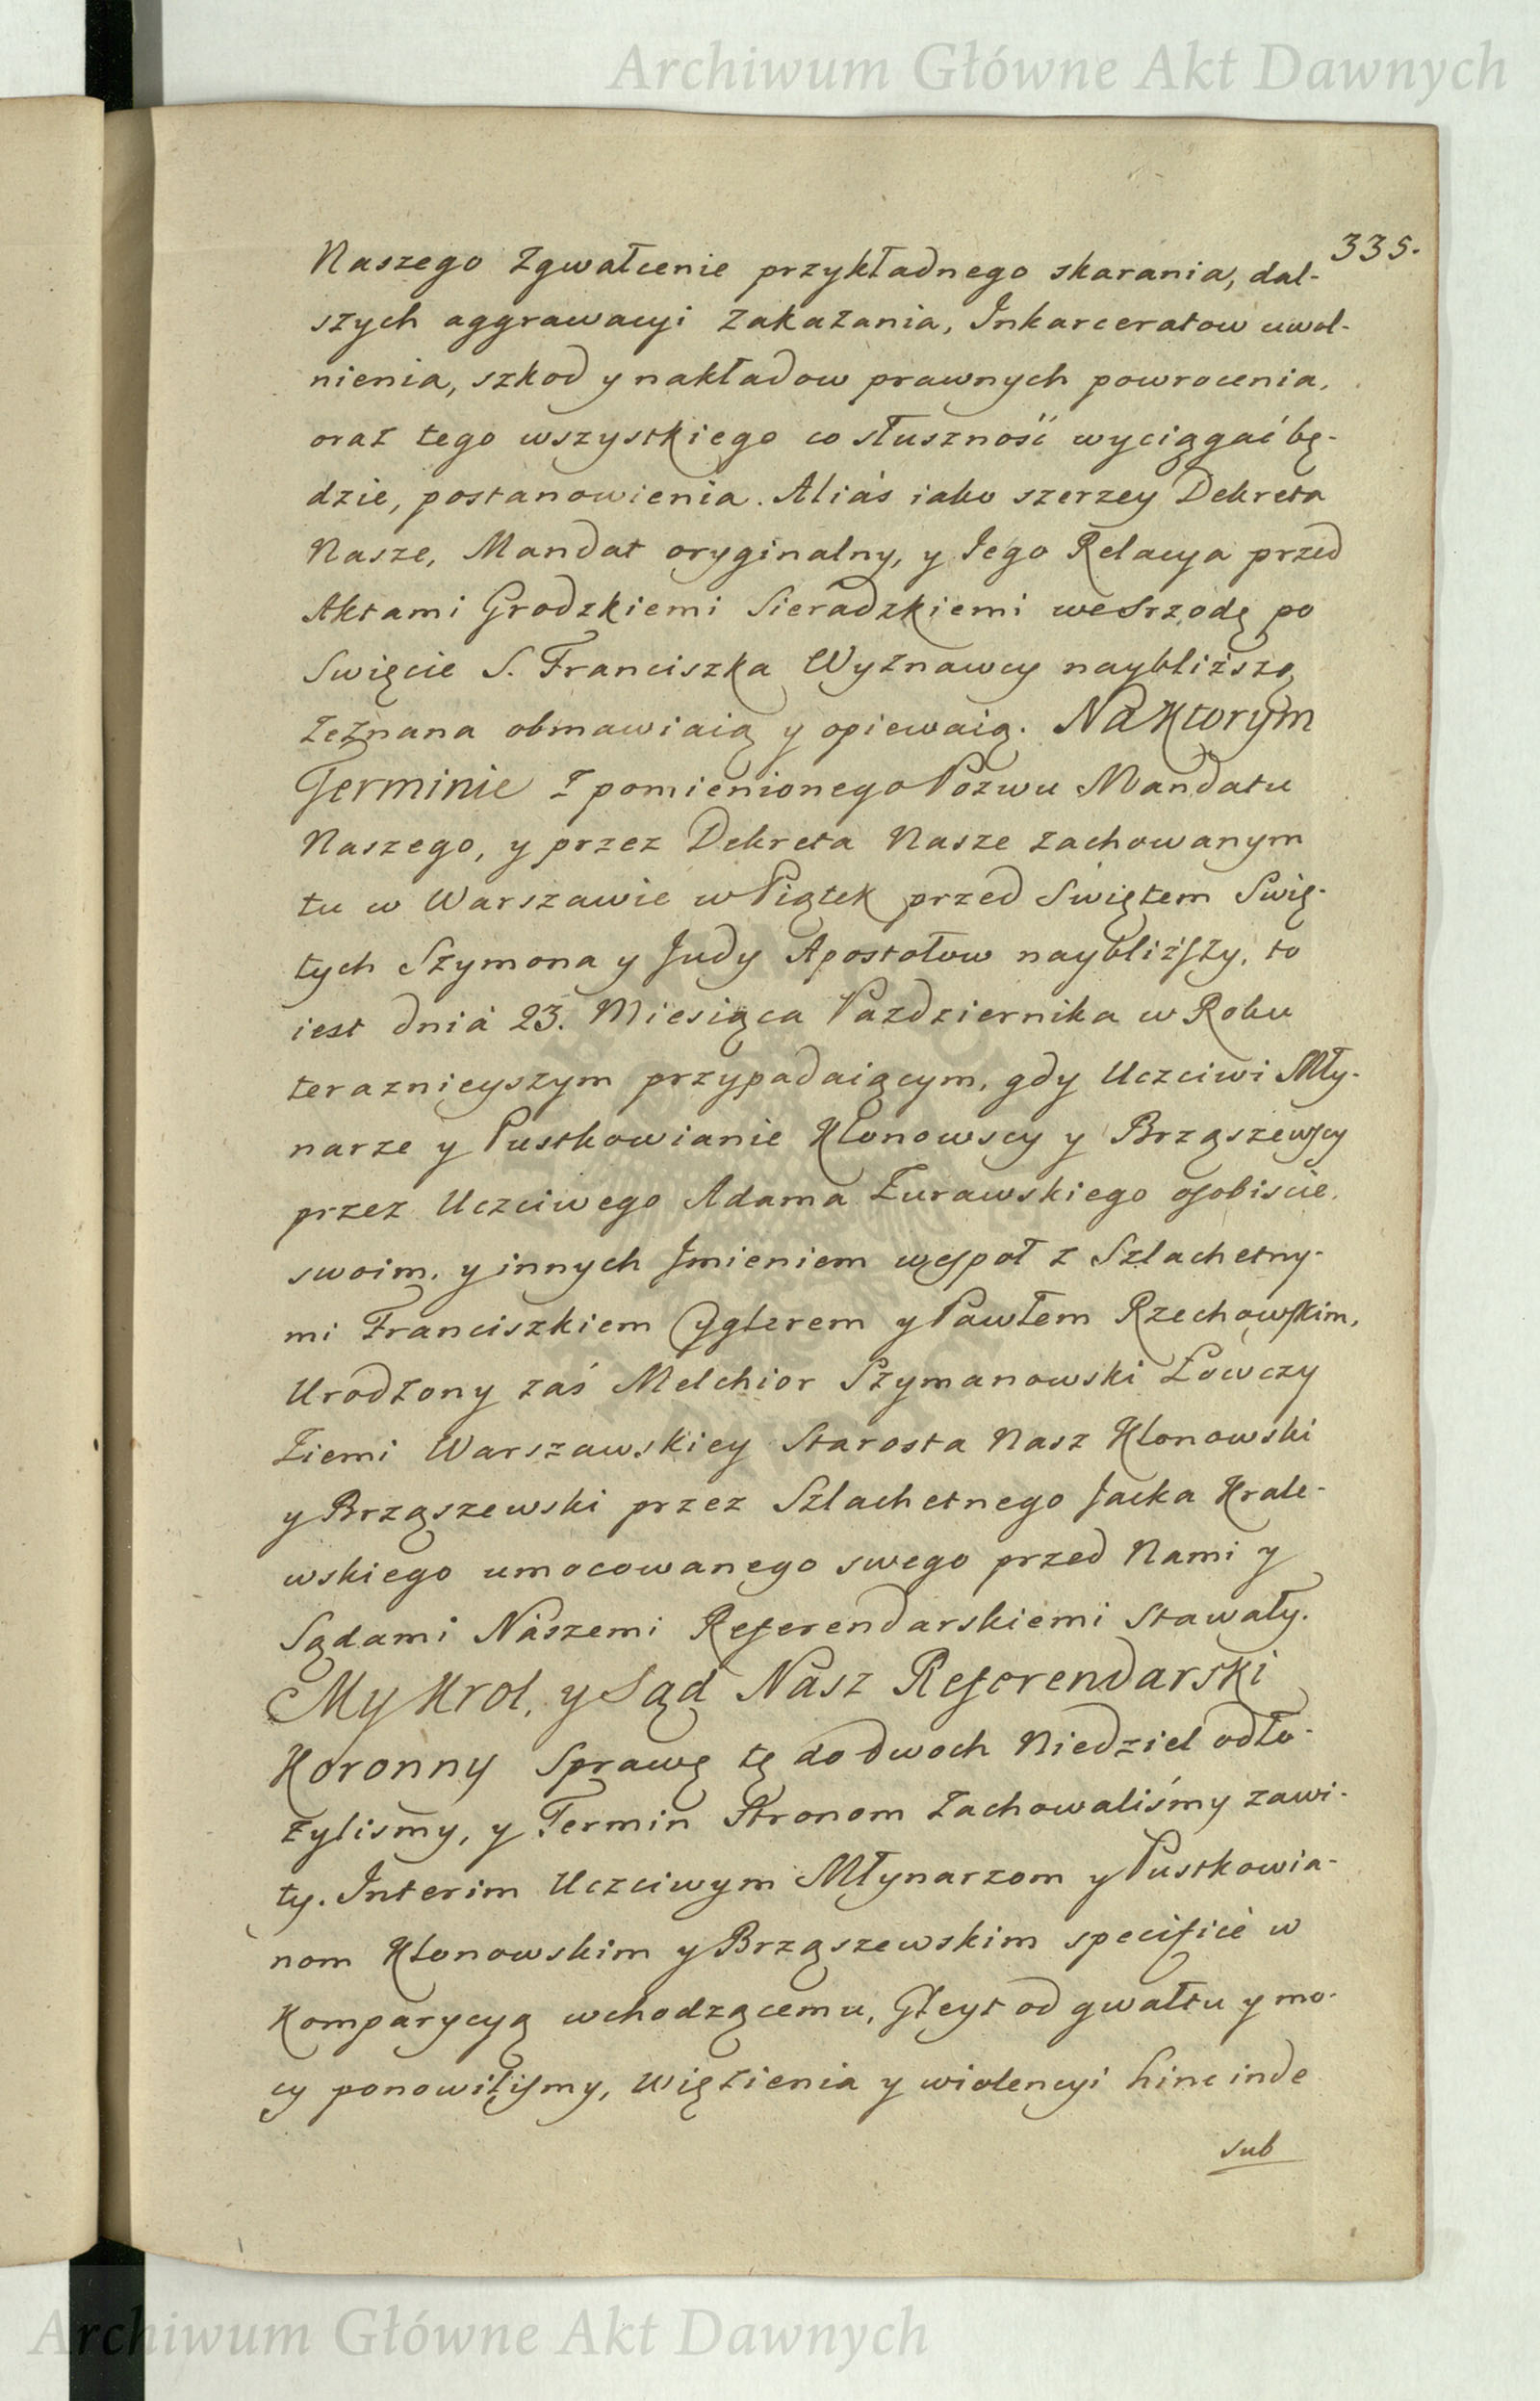 Archiwum Główne Akt Dawnych
335.
Naszego Zgwałcenie przykładnego skarania, dal-
szych aggrawacyi Zakazania, Inkarceratow uwol-
nienia, szkod y nakładow prawnych powrocenia,
oraz tego wszystkiego co słuszność wyciągać bę-
dzie, postanowienia. Aliàs iako szerzey Dekreta
Nasze, Mandat oryginalny, y Iego Relacya przed
Aktami Grodzkiemi Sieradzkiemi we Srzodę po
Swięcie S. Franciszka Wyznawcy naybliższą
zeznana obmawiaią y opiewaią. Na Ktorym
Terminie z pomienionego Pozwu Mandatu
Naszego, y przez Dekreta Nasze zachowanym
tu w Warszawie w Piątek przed Swiętem Swię-
tych Szymona y Judy Apostołow naybliższy, to
iest dnià 23. Miesiąca Pazdziernika w Roku
teraznieyszym przypadaiącym, gdy Uczciwi Mły-
narze y Pustkowianie Klonowscy y Brząszewscy
przez Uczciwego Adama Żurawskiego osobiscie,
swoim, y innych Imieniem wespoł z Szlachetny-
mi Franciszkiem Cyglerem y Pawłem Rzechowskim,
Urodzony zaś Melchior Szymanowski Łowczy
Ziemi Warszawskiey Starosta Nasz Klonowski
y Brząszewski przez Szlachetnego Jacka Krale-
wskiego umocowanego swego przed Nami y
Sądami Nászemi Referendarskiemi Stawały.
My Krol, y Sąd Nász Referendarski
Koronny Sprawę tę do dwoch Niedziel odło-
żylismy, y Termin Stronom Zachowaliśmy zawi-
ty. Interim Uczciwym Młynarzom y Pustkowia-
nom Klonowskim y Brząszewskim specificè w
Komparycyą wchodzącemu, Gleyt od gwałtu y mo-
cy ponowilismy, Więzienia y wiolencyi hinc inde
sub
Archiwum Główne Akt Dawnych